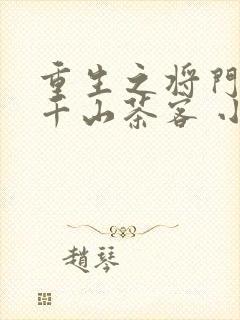 重生之将門
千山茶客 小
趙琴